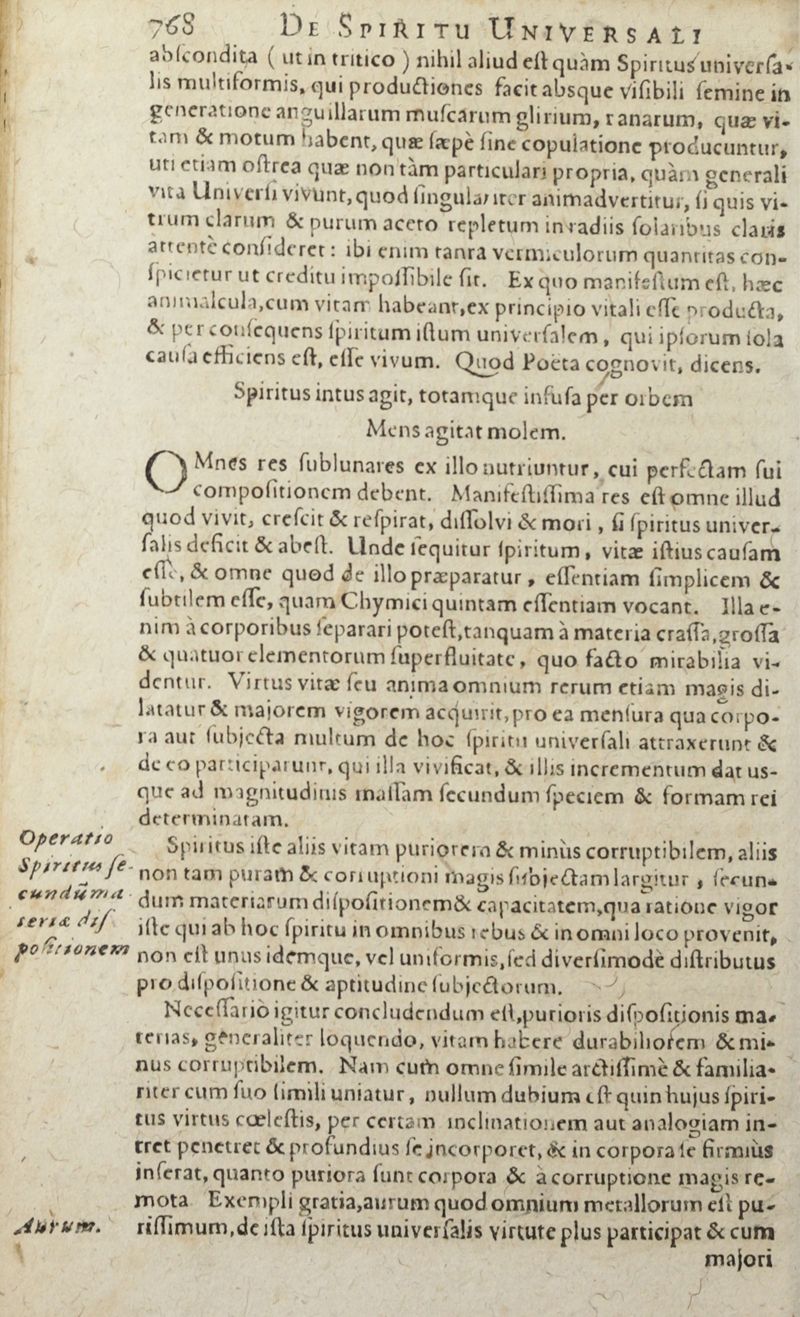 768 DE SPIRITU UNIVERSALI
abſcondita ( ut in tritico ) nihil aliud eſt quàm Spiritus univerſa-
lis multiformis, qui productiones facit absque viſibili ſemine in
generatione anguillarum muſcarum glirium, ranarum, quæ vi-
tam & motum habent, quæ ſæpè ſine copulatione producuntur,
uti etiam oſtrea quæ non tàm particulari propria, quàm generali
vita Univerſi vivunt, quod ſingulariter animadvertitur, ſi quis vi-
trum clarum & purum aceto repletum in radiis ſolaribus claris
attentè conſideret : ibi enim tanta vermiculorum quantitas con-
ſpicietur ut creditu impoſſibile ſit. Ex quo manifeſtum eſt, hæc
animalcula, cum vitam habeant, ex principio vitali eſſe producta,
& per conſequens ſpiritum iſtum univerſalem , qui ipſorum ſola
cauſa efficiens eſt, eſſe vivum. Quod Poëta cognovit, dicens.
Spiritus intus agit, totamque infuſa per orbem
Mens agitat molem.
OMnes res ſublunares ex illo nutriuntur, cui perfectam ſui
compoſitionem debent. Manifeſtiſſima res eſt omne illud
quod vivit, creſcit & reſpirat, diſſolvi & mori , ſi ſpiritus univer-
ſalis deficit & abeſt. Unde ſequitur ſpiritum , vitæ iſtius cauſam
eſſe, & omne quod de illo præparatur , eſſentiam ſimplicem &
ſubtilem eſſe, quam Chymici quintam eſſentiam vocant. Illa e-
nim à corporibus ſeparari poteſt, tanquam à materia craſſa, groſſa
& quatuor elementorum ſuperfluitate, quo facto mirabilia vi-
dentur. Virtus vitæ ſeu anima omnium rerum etiam magis di-
latatur & majorem vigorem acquirit, pro ea menſura qua corpo-
ra aut ſubjecta multum de hoc ſpiritu univerſali attraxerunt &
de eo participarunt, qui illa vivificat, & illis incrementum dat us-
que ad magnitudinis maſſam ſecundum ſpeciem & formam rei
determinatam.
Operatio Spiritus ſe-
cundùm a
teriæ diſ
poſitionem
Spiritus iſte aliis vitam puriorem & minùs corruptibilem, aliis
non tam puram & corruptioni magis ſubjectam largitur , ſecun-
dum materiarum diſpoſitionem & capacitatem, qua ratione vigor
iſte qui ab hoc ſpiritu in omnibus rebus & in omni loco provenit,
non eſt unus idemque, vel uniformis, ſed diverſimodè diſtributus
pro diſpoſitione & aptitudine ſubjectorum.
Neceſſariò igitur concludendum eſt, purioris diſpoſitionis ma-
terias, generaliter loquendo, vitam habere durabiliorem & mi-
nus corruptibilem. Nam cum omne ſimile arctiſſimè & familia-
riter cum ſuo ſimili uniatur, nullum dubium eſt quin hujus ſpiri-
tus virtus cœleſtis, per certam inclinationem aut analogiam in-
tret penetret & profundius ſe jncorporet, & in corpora ſe firmiùs
inſerat, quanto puriora ſunt corpora & à corruptione magis re-
mota Exempli gratia, aurum quod omnium metallorum eſt pu-
Aurum.
riſſimum, de iſta ſpiritus univerſalis virtute plus participat & cum
majori